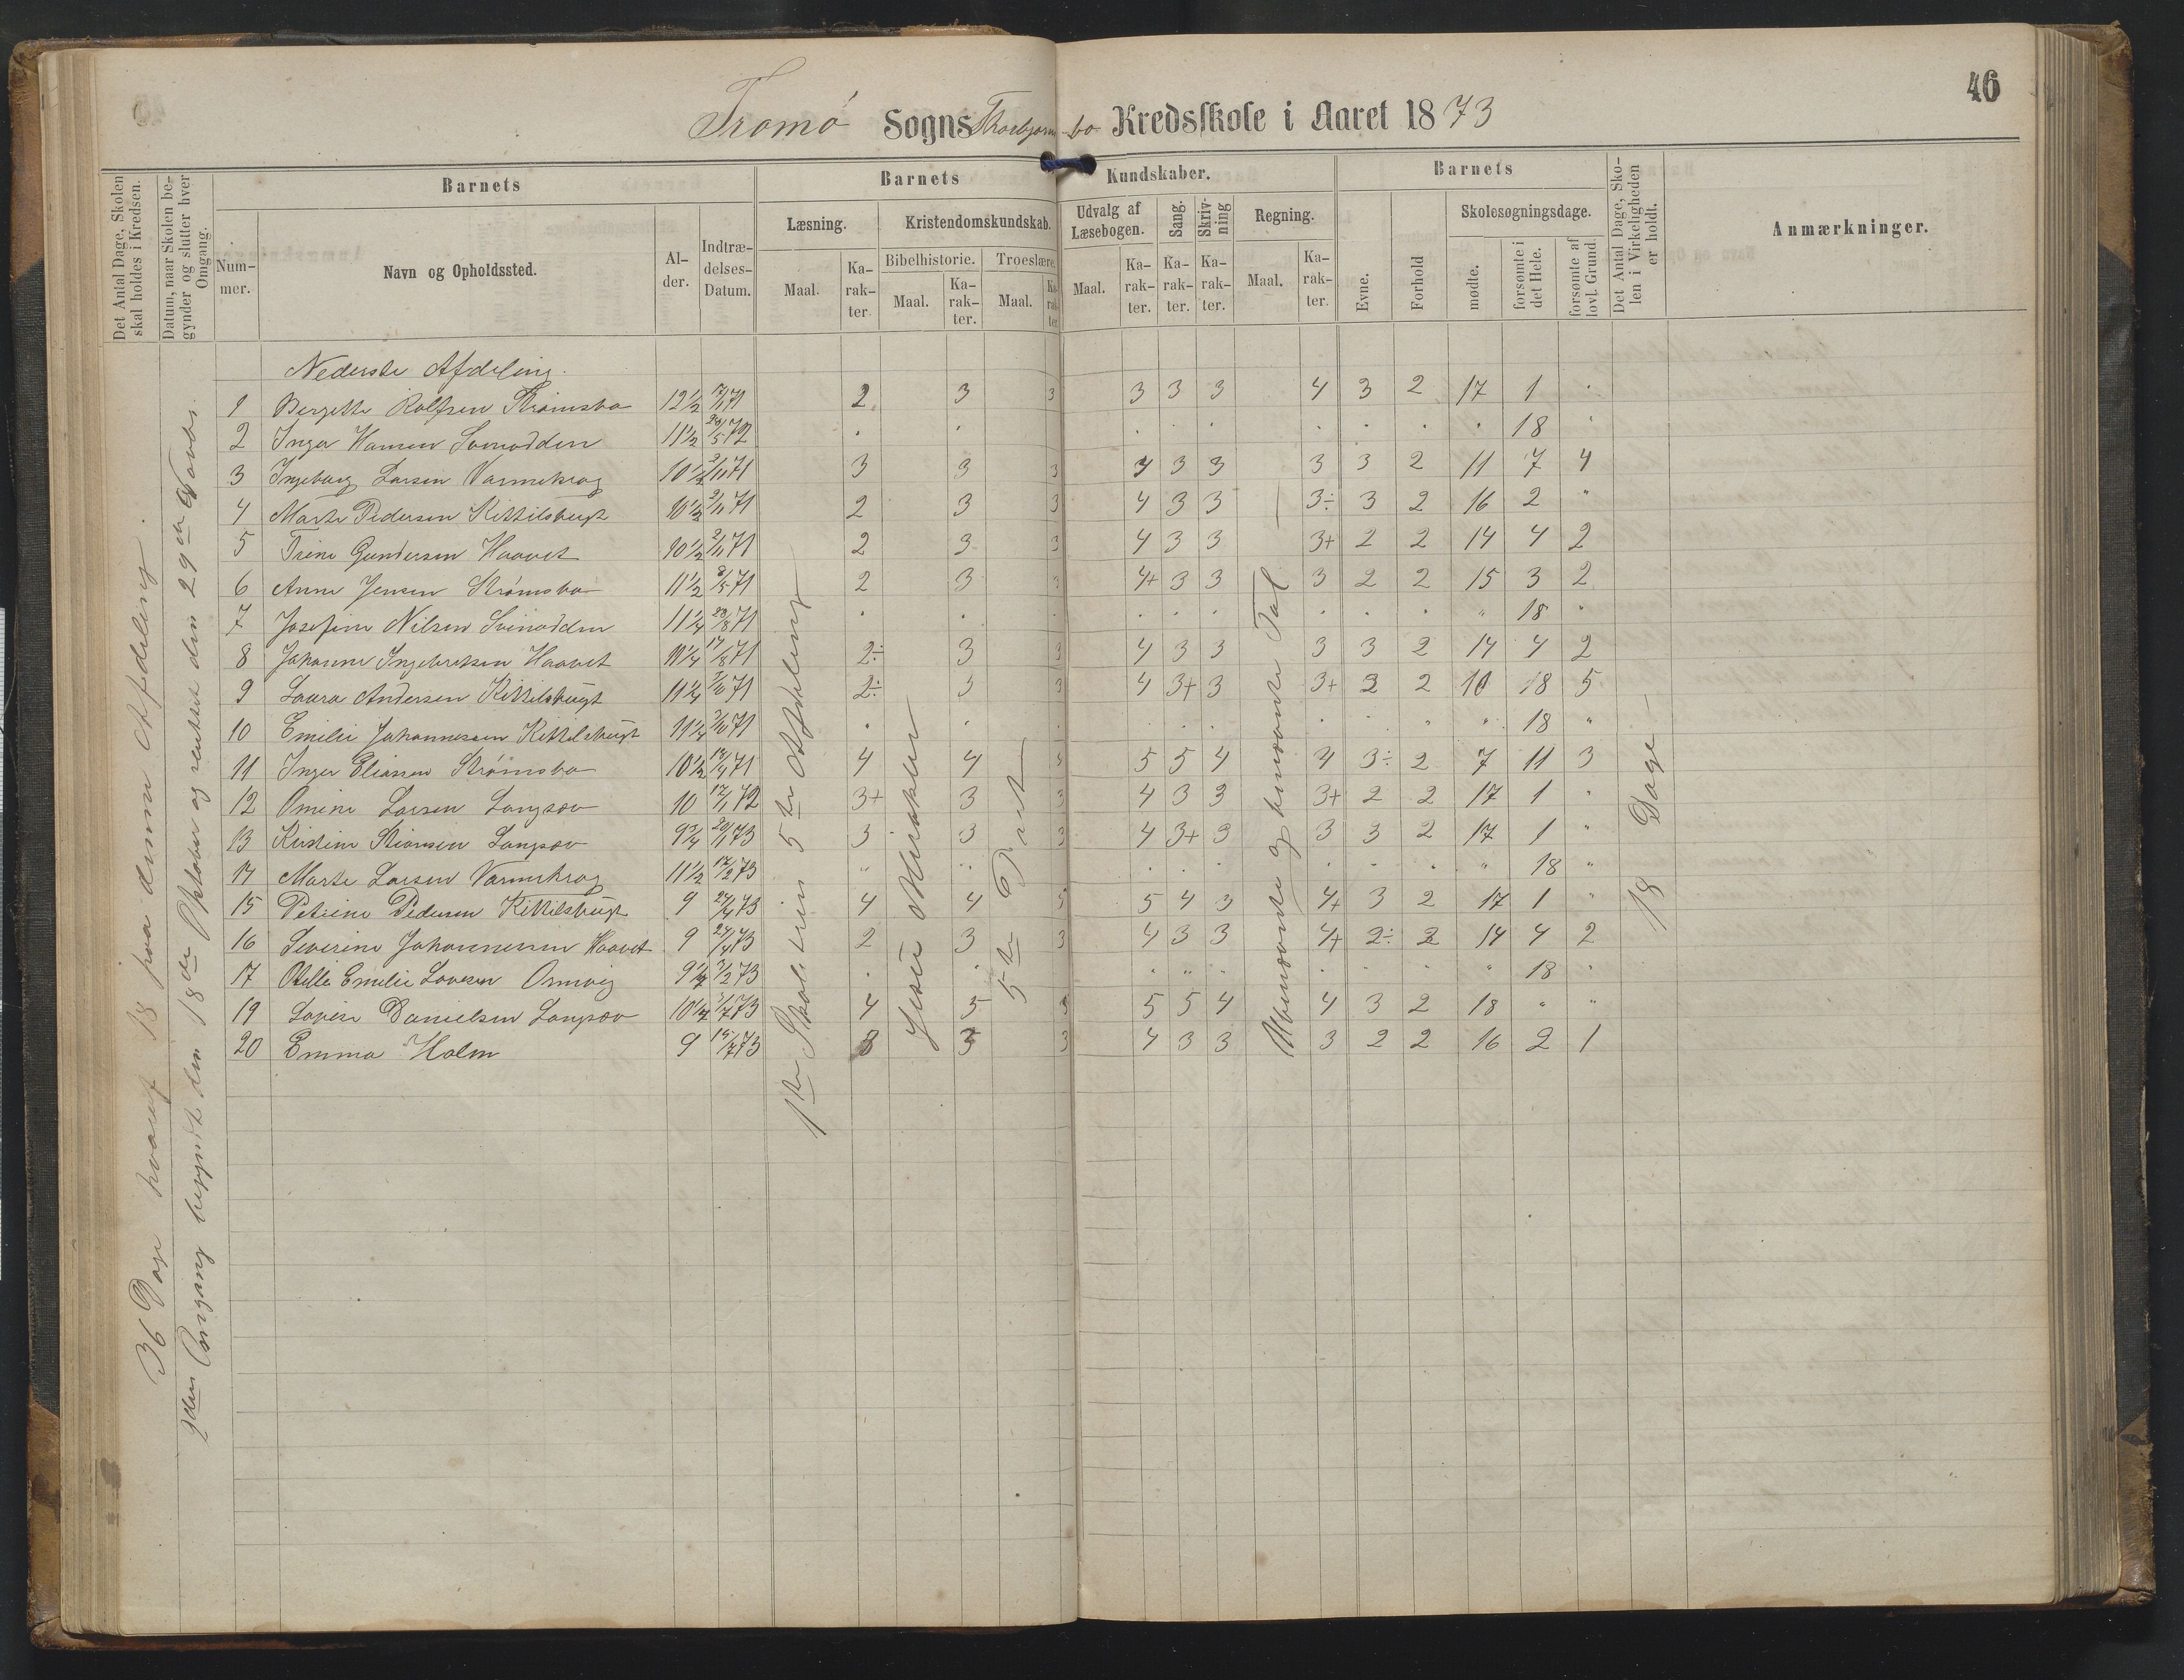 46
Tromø Sogns Thorbjørnsbo Kredsskole i Aaret 1873
Det Antal Dage, Skolen skal holdes i Kredsen.
Datum, naar Skolen begynder og slutter hver Omgang.
Barnets
Barnets Kundskaber.
Barnets
Det Antal Dage, Skolen i Virkeligheden er holdt.
Anmærkninger.
Nummer.
Navn og Opholdssted.
Alder.
Indtrædelses-Datum.
Læsning.
Kristendomskundskab.
Udvalg af Læsebogen.
Sang.
Skrivning
Regning.
Evne.
Forhold
Skolesøgningsdage.
Bibelhistorie.
Troeslære.
Maal. Karakter. Maal. Karakter. Maal. Karakter. Maal. Karakter. Karakter. Karakter. Maal. Karakter.
mødte.
forsømte i det Hele.
forsømte af lovl. Grund.
36 Dage hvoraf 18 paa denne Afdeling.
2den Omgang begyndte den 18de Oktober og sluttet den 29de Novbr.
Nederste Afdeling.
1 Bergette Rolfsen Strømsbo 12½ 71 2 3 3 3 3 3 4 3 2 17 1 "
2 Inger Hansen Svinodden 11½ 72 18 "
3 Ingeborg Larsen Varmekrog 10½ 2/11 71 3 3 3 4 3 3 3 3 2 11 7 4
4 Marte Pedersen Kittilsbugt 10½ 2/11 71 2 3 3 4 3 3 3÷ 3 2 16 2 "
5 Trine Gundersen Haavet 10½ 2/11 71 2 3 3 4 3 3 3+ 2 2 14 4 2
6 Anne Jensen Strømsbo 11½ 71 2 3 3 4+ 3 3 3 2 2 15 3 2
7 Josefine Nilsen Svinodden 11¼ 28/8 71 " 18 "
8 Johanne Ingebretsen Haavet 11¼ 17/8 71 2÷ 3 3 4 3 3 3 3 2 14 4 2
9 Laura Andersen Kittilsbugt 11¼ 71 2÷ 3 3 4 3+ 3 3+ 2 2 10 18 5
10 Emilie Johannessen Kittilsbugt 11¼ 71 " 18 "
11 Inger Eliassen Strømsbo 10½ 71 4 4 5 5 4 4 3÷ 2 7 11 3
12 Omine Larsen Langsæv 10 12/1 72 3+ 3 3 4 3 3 3+ 2 2 17 1 "
13 Kirstine Stiansen Langsæv 9¾ 20/1 73 3 3 3 4 3+ 3 3 3 2 17 1 "
14 Marte Larsen Varmekrog 11½ 17/2 73 " 18 "
15 Petrine Pedersen Kittilsbugt 9 24/4 73 4 4 5 4 3 4+ 3 2 17 1 "
16 Severine Johannessen Haavet 9 24/4 73 2 3 3 4 3 3 4+ 2÷ 2 14 4 2
17 Emilie 73 " 18 "
19 Lovise Danielsen Langsæv 10¼ 1/7 73 4 5 5 5 4 4 3 2 18 " "
20 Emma Holm 9 15/7 73 3 3 3 4 3 3 3 2 2 16 2 1
1ste Skoletrin 5te Afdeling
Jesu Mirakler
5te Part
Ubenævnte og benævnte Tal
18 Dage